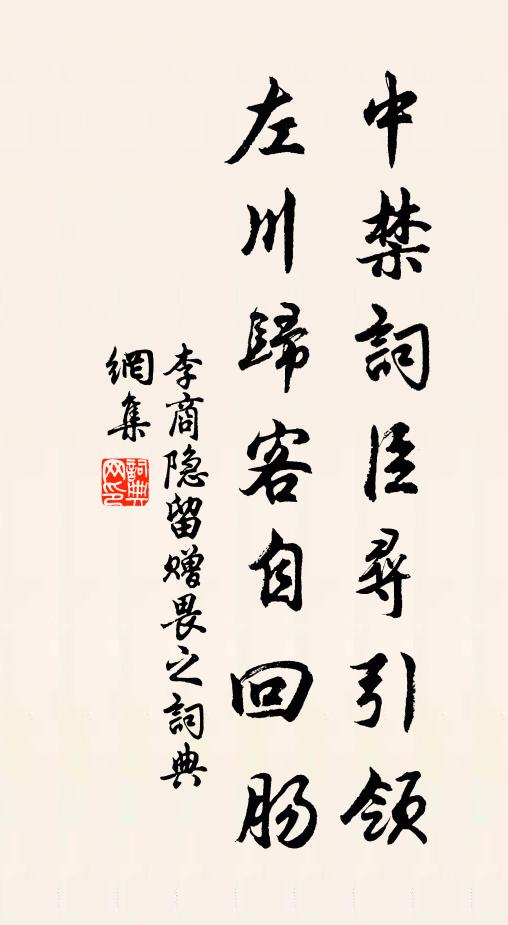 中禁詞臣尋引領
左川歸客自回肠
李商隐留赠畏之詞典
網集
詞典
网印